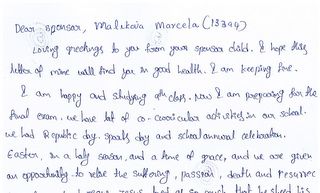 Dear sponsor, Malikaia Marcela (13399)
Loving greetings to you from your sponsor child. I hope this
letter of mine will find you in good health. I am keeping fine.
I am happy and studying 9th class. Now I am preparing for the
final exam. We have lot of co-cooricular activities in our school.
We had Republic day, sports day and school annual celebration.
Easter, in a holy season, and a time of grace, and we are given
an opportunity to relive the suffering, passion, death and resurrec
Jesus so much that he shed his